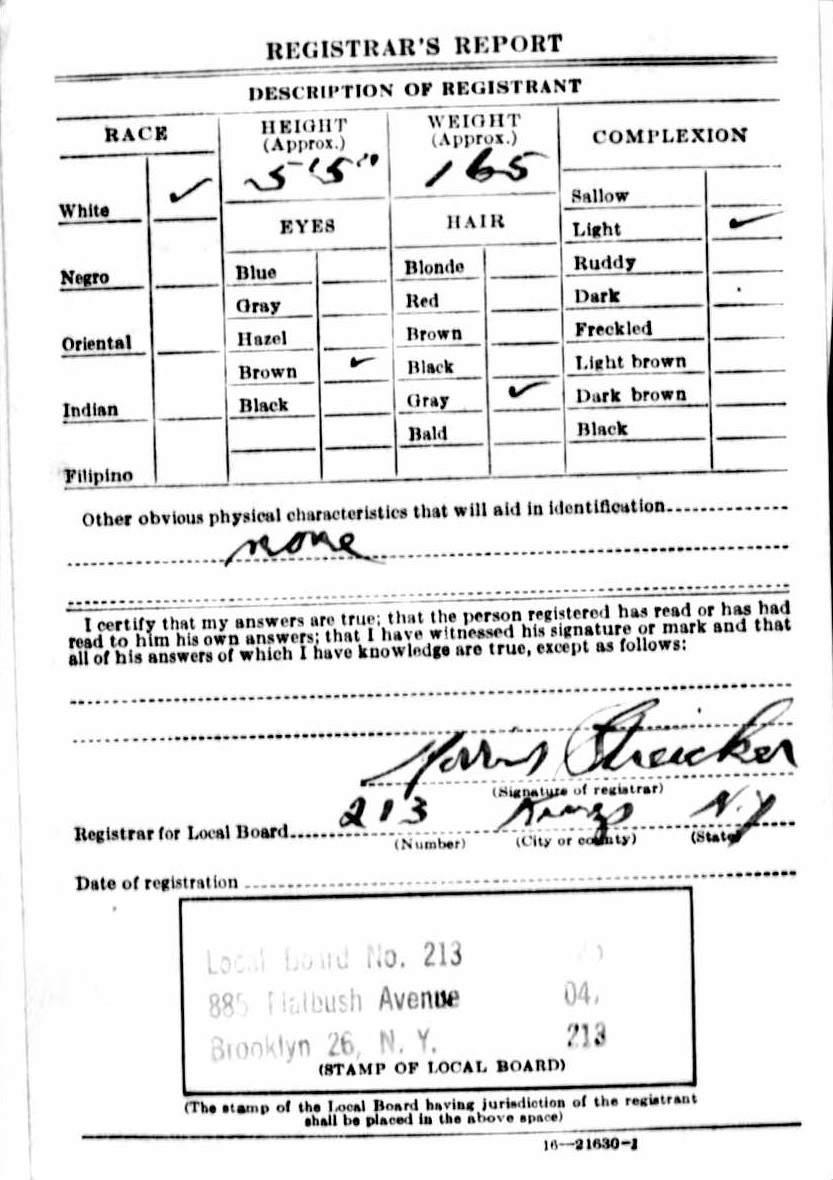 REGISTRAR'S REPORT
DESCRIPTION OF REGISTRANT
RACE
HEIGHT
(Approx.)
WEIGHT
(Approx.)
COMPLEXION
5'5" 165
White ✓
Sallow
EYES HAIR
Light ✓
Negro
Blue
Blonde
Ruddy
Gray
Red
Dark
Oriental
Hazel
Brown
Freckled
Brown ✓
Black
Light brown
Indian
Black
Gray ✓
Dark brown
Bald
Black
Filipino
Other obvious physical characteristics that will aid in identification
none
I certify that my answers are true; that the person registered has read or has had
read to him his own answers; that I have witnessed his signature or mark and that
all of his answers of which I have knowledge are true, except as follows:
Morris Streicker
(Signature of registrar)
Registrar for Local Board 213 Kings N.Y
(Number) (City or county) (State)
Date of registration
Local Board No. 213
885 Flatbush Avenue 04,
Brooklyn 26, N. Y. 213
(STAMP OF LOCAL BOARD)
(The stamp of the Local Board having jurisdiction of the registrant
shall be placed in the above space)
16—21630-1